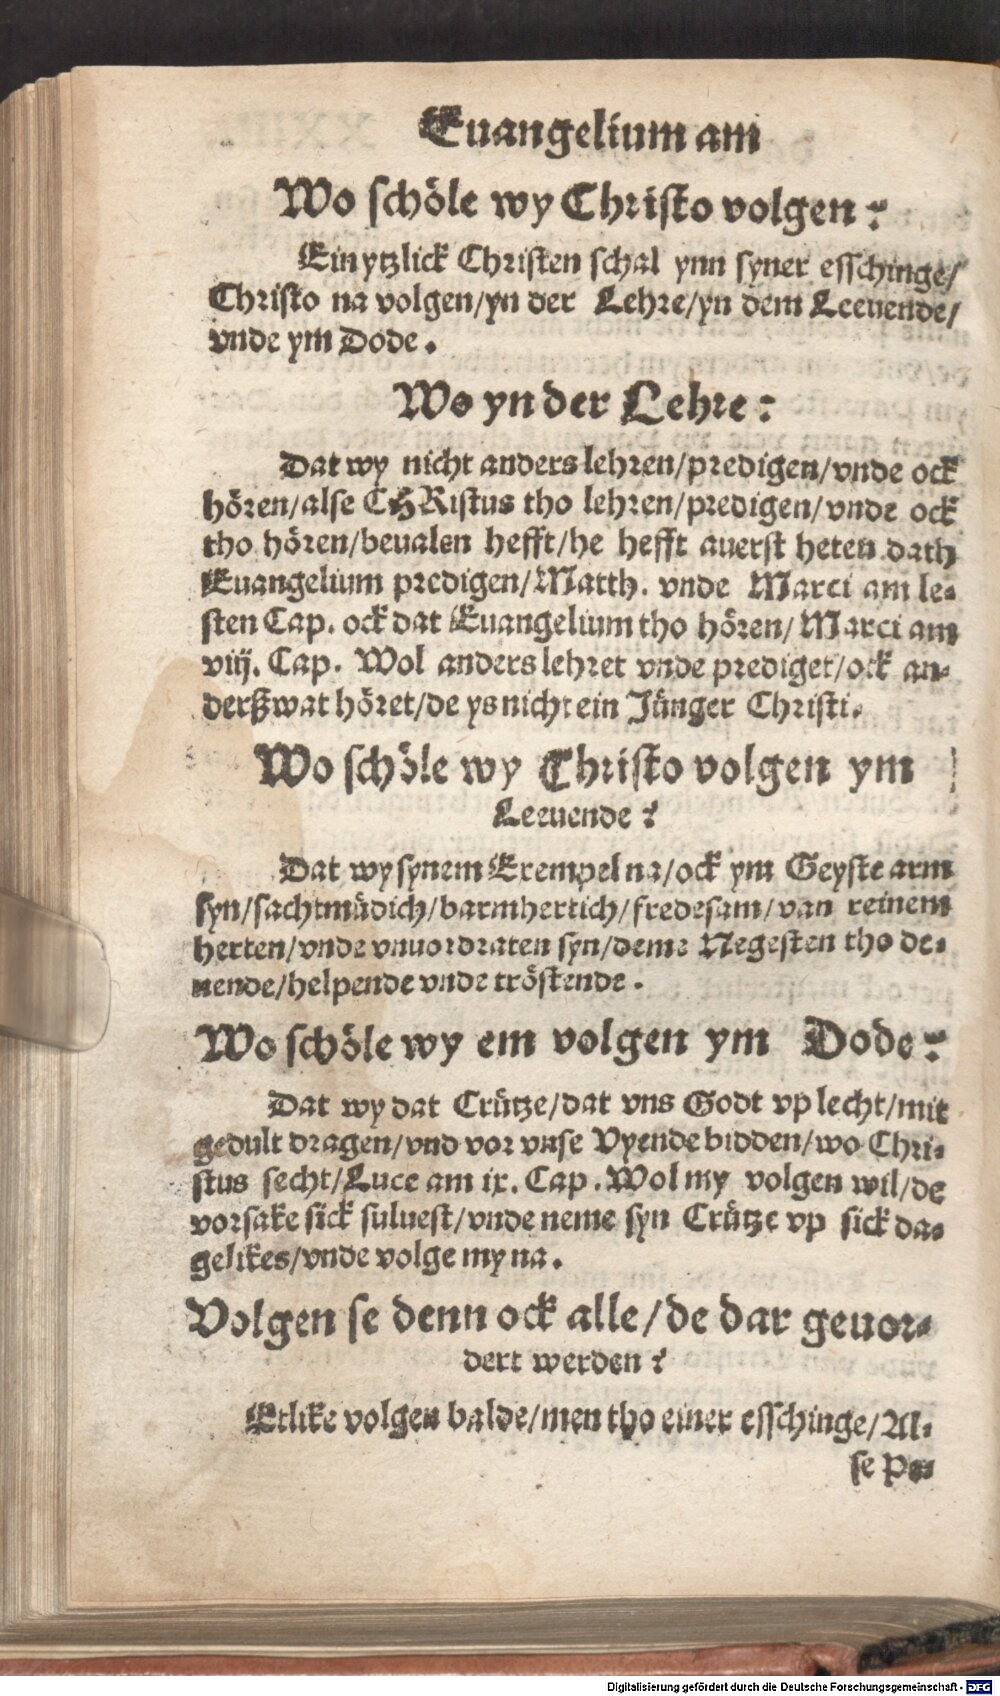 Euangelium am
Wo schöle wy Christo volgen?
Ein ytzlick Christen schal ynn syner esschinge/
Christo na volgen/yn der Lehre/yn dem Leeuende/
vnde ym Dode.
Wo yn der Lehre?
Dat wy nicht anders lehren/predigen/vnde ock
hören/alse CHRistus tho lehren/predigen/vnde ock
tho hören/beualen hefft/he hefft auerst heten dath
Euangelium predigen/Matth. vnde Marci am le-
sten Cap. ock dat Euangelium tho hören/Marci am
viij. Cap. Wol anders lehret vnde prediget/ock an-
derßwat höret/de ys nicht ein Jünger Christi.
Wo schöle wy Christo volgen ym
Leeuende?
Dat wy synem Exempel na/ock ym Geyste arm
syn/sachtmüdich/barmhertich/fredesam/van reinem
herten/vnde vnuordraten syn/deme Negesten tho de-
nende/helpende vnde tröstende.
Wo schöle wy em volgen ym Dode?
Dat wy dat Crütze/dat vns Godt vp lecht/mit
gedult dragen/vnd vor vnse Vyende bidden/wo Chri-
stus secht/Luce am ix. Cap. Wol my volgen wil/de
vorsake sick suluest/vnde neme syn Crütze vp sick da-
gelikes/vnde volge my na.
Volgen se denn ock alle/de dar geuor-
dert werden?
Etlike volgen balde/men tho einer esschinge/Al-
se Pe-
Digitalisierung gefördert durch die Deutsche Forschungsgemeinschaft - DFG